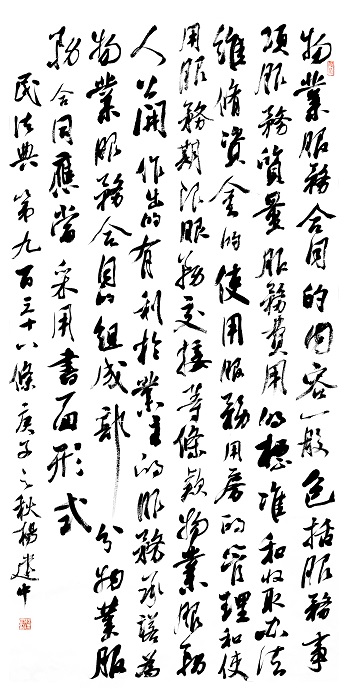 物業服務合同的内容一般包括服務事
項服務質量服務費用的標准和收取办法
維脩資金的使用服務用房的管理和使
用服務期限服務交接等條款物業服務
人公開作出的有利於業主的服務承諾為
物業服務合同的組成部分物業服
務合同應當采用書面形式
民法典第九百三十八條庚子之秋楊建中